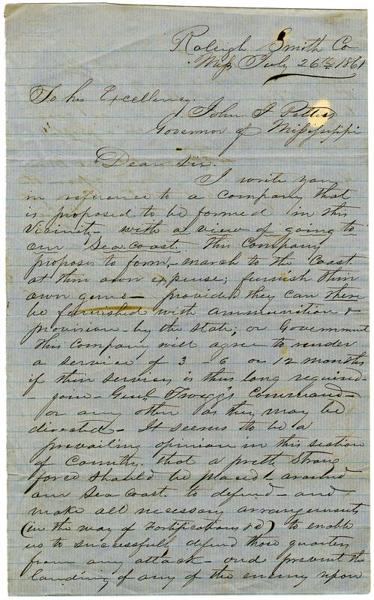 Raleigh Smith Co
Miss July 26th 1861
To his Excellency
John J Pettus
Governor of Mississippi
Dear Sir.
I write you
in reference to a company that
is proposed to be formed in this
Vicinity with a view of going to
our Sea coast this Company
propose to form - march to the Coast
at their own expense; furnish their
own guns - provided they can then
be furnished with ammunition &
provision by the state, or Government
this Company will agree to render
a service of 3 6 or 12 months
if their service is thus long required -
join - Genl Twiggs Command -
or any other as they may be
directed - It seems to be a
prevailing opinion in this section
of Country, that a pretty strong
force should be placed around
our Sea Coast to defend - and
make all necessary arrangements
(in the way of fortifications &c) to enable
us to successfully defend those quarters
from any attack - and prevent the
landing of any of the enemy upon